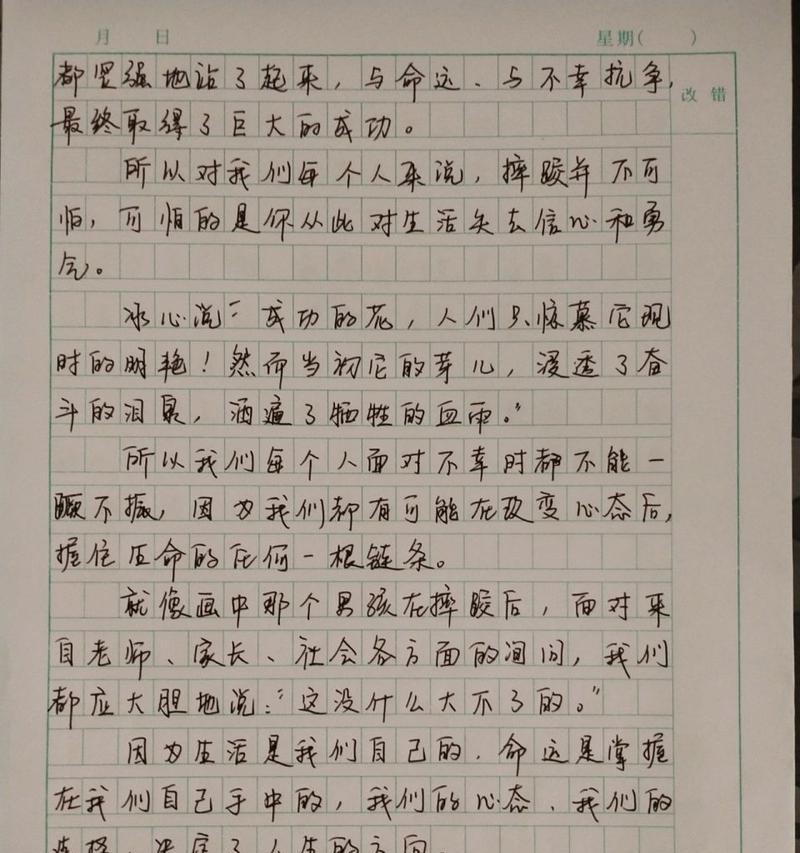 月 日 星期( )
都坚强地站了起来，与命运、与不幸抗争，
改 错
最终取得了巨大的成功。
所以对我们每个人来说，摔跤并不可
怕，可怕的是你从此对生活失去信心和勇
气。
冰心说：“成功的花，人们只惊慕它现
时的明艳！然而当初它的芽儿，浸透了奋
斗的泪泉，洒遍了牺牲的血雨。”
所以我们每个人面对不幸时都不能一
蹶不振，因为我们都有可能在改变心态后，
握住生命的任何一根链条。
就像画中那个男孩在摔跤后，面对来
自老师、家长、社会各方面的询问，我们
都应大胆地说：“这没什么大不了的。”
因为生活是我们自己的，命运是掌握
在我们自己手中的，我们的心态、我们的
选择，决定了人生的方向。